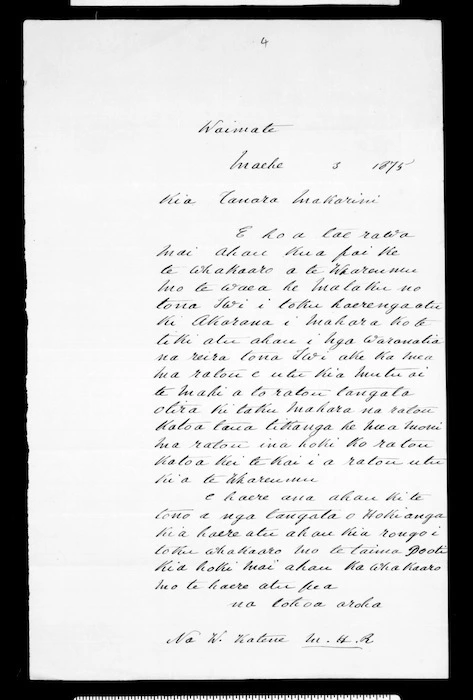 4
Waimate
Maehe 3 1875
Kia Tanara Makarini
E hoa tae rawa
mai ahau kua pai ke
te whakaaro a te Whareumu
mo te waea he mataku no
tona Iwi i toku haerenga atu
ki Akarana i mahara ko te
tiki atu ahau i nga Waranatia
na reira tona Iwi ake ka mea
ma ratou e utu kia mutu ai
te mahi a to ratou tangata
otira ki taku mahara na ratou
katoa taua tikanga he mea moni
ma ratou ina hoki ko ratou
katoa kei te kai i a ratou utu
ki a te Whareumu
e haere ana ahau ki te
tono a nga tangata o Hokianga
kia haere atu ahau kia rongo i
toku whakaaro mo te taima Pooti
kia hoki mai ahau ka whakaaro
mo te haere atu pea
na tohoa aroha
Na W. Katene M.H.R